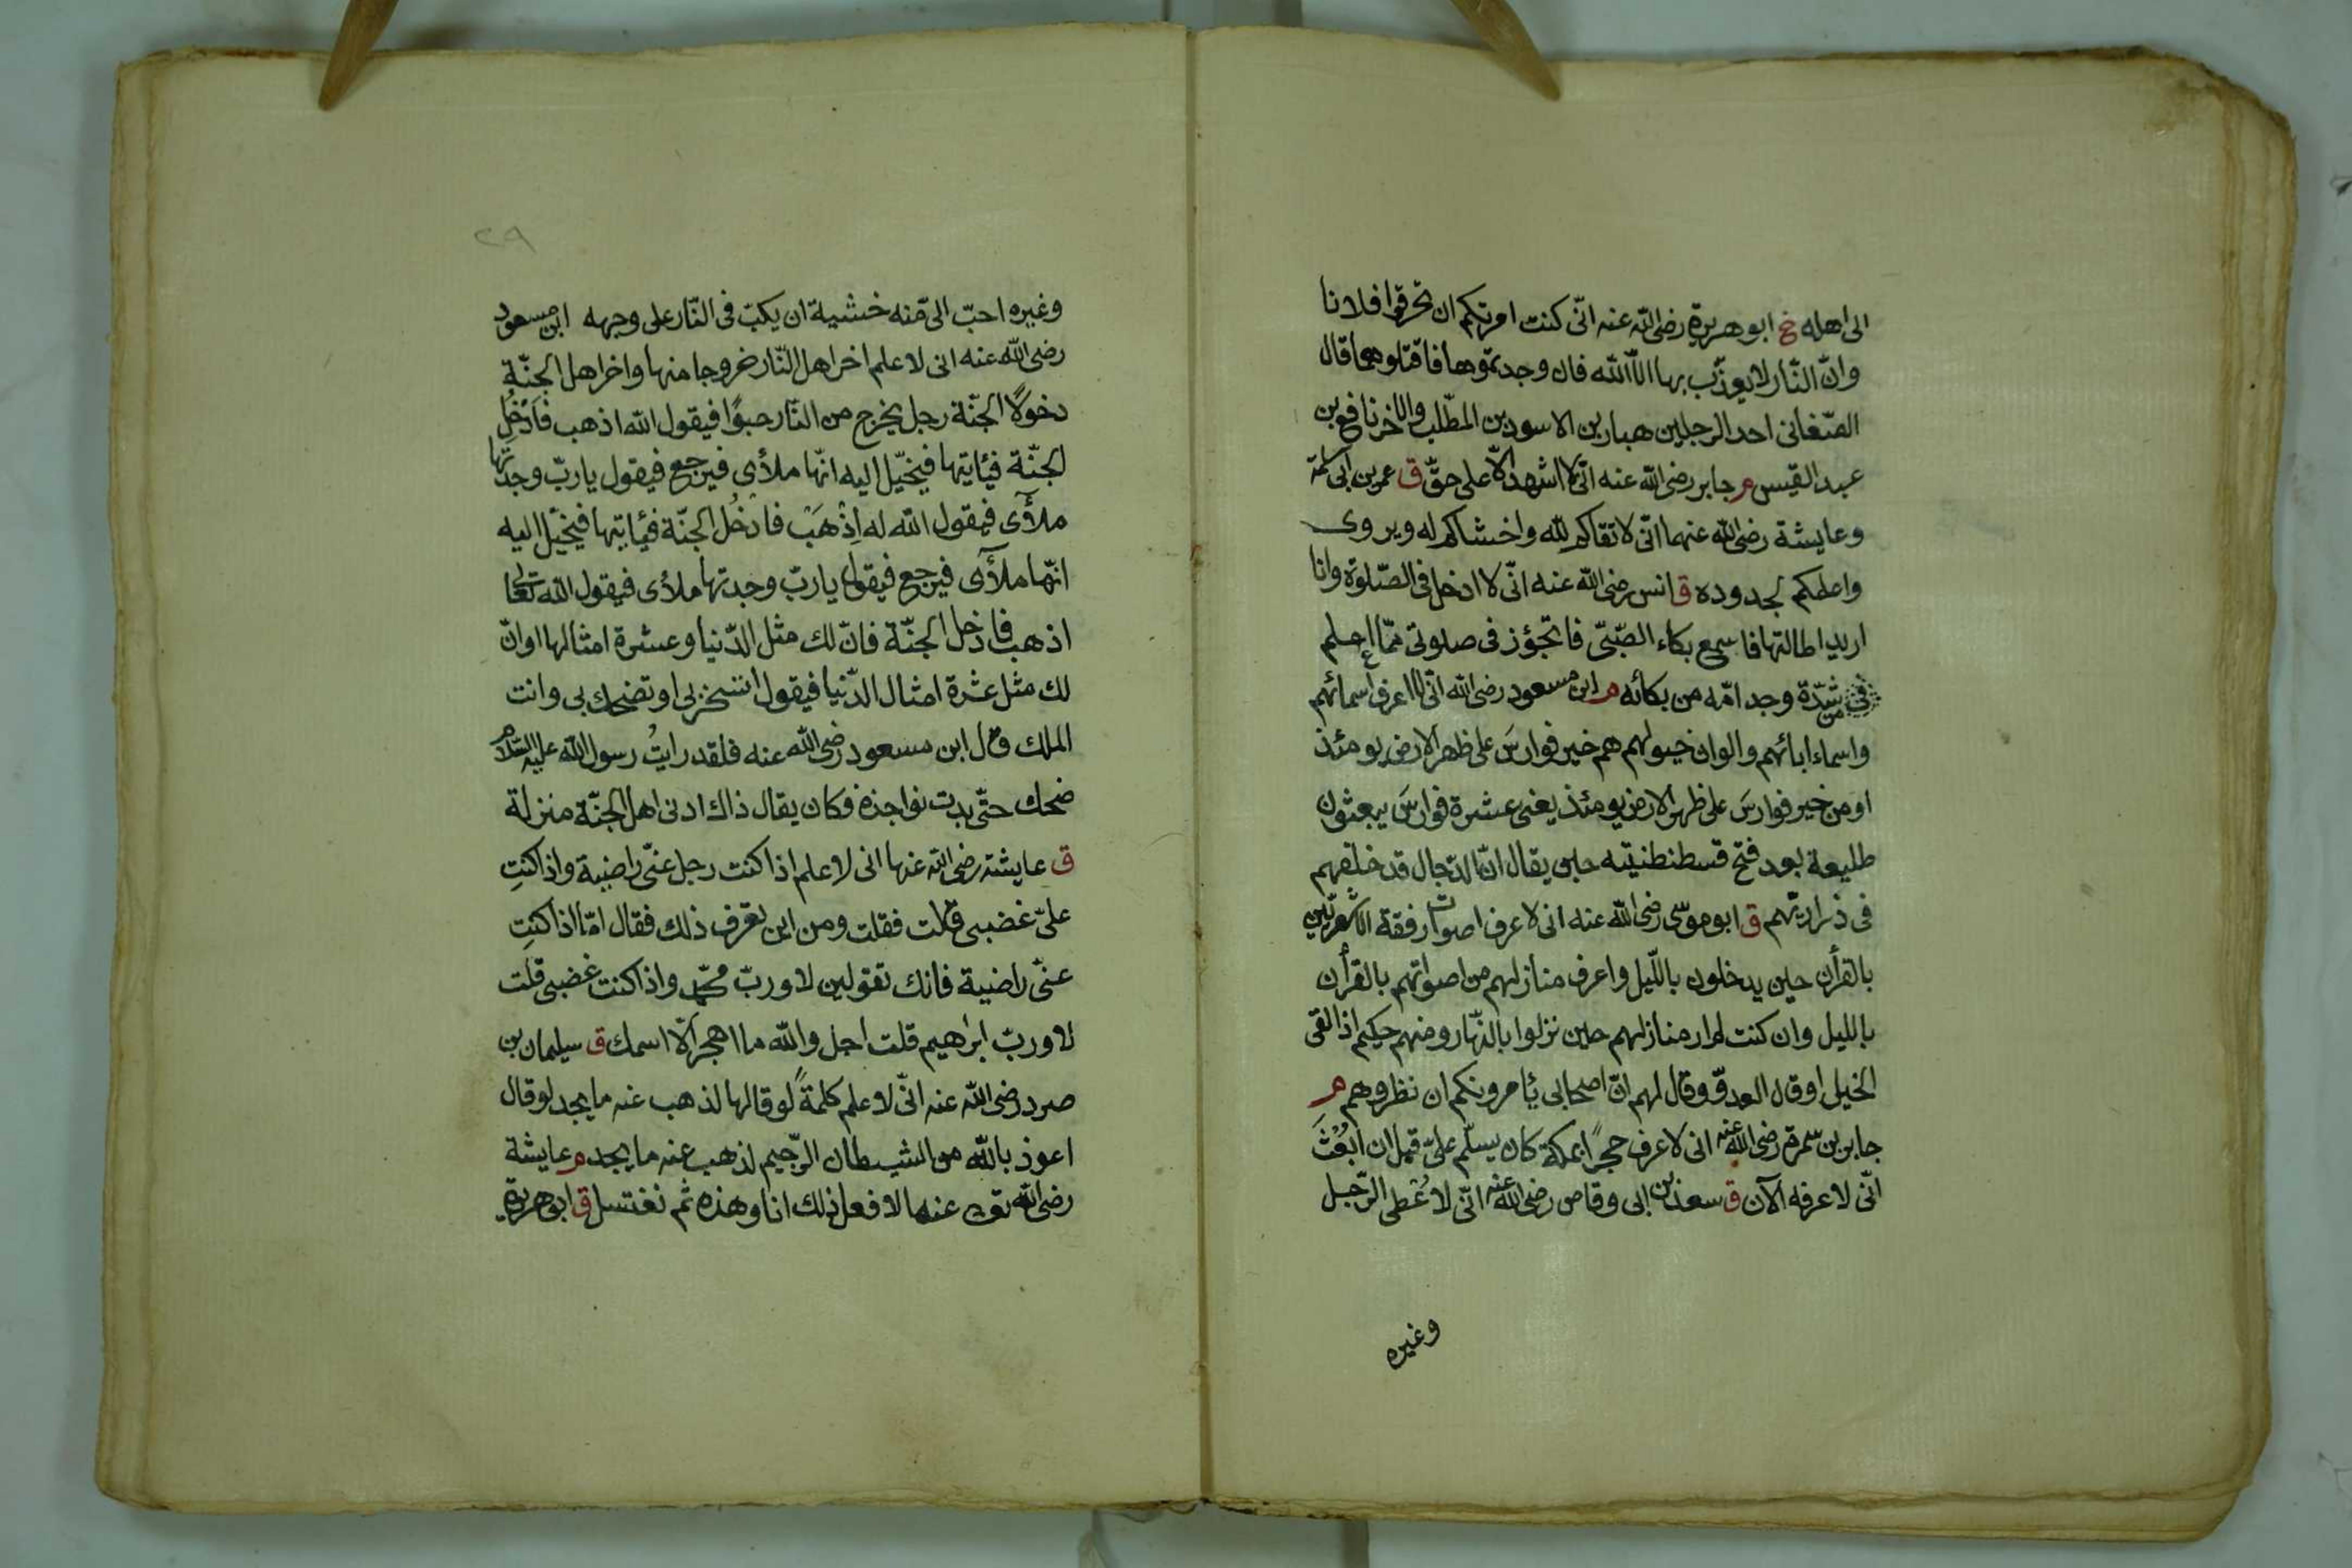 الى اهله خ ابو هريرة رضى الله عنه انّى كنت امرتكم ان تحرقوا فلانا
وانّ النّار لا يعذّب بها الّا الله فان وجدتموهما فاقتلوهما قال
الصّغانى احد الرجلين هبار بن الاسود بن المطّلب والاخر نافع بن
عبد القيس م جابر رضى الله عنه انّى لا اشهد الّا على حقّ ق عمر بن ابى سلمة
وعايشة رضى الله عنهما انّى لاتقاكم لله واخشاكم له ويروى
واعلمكم بحدوده ق انس رضى الله عنه انّى لا ادخل فى الصّلوة وانا
اريد اطالتها فاسمع بكاء الصّبىّ فاتجوّز فى صلوتى ممّا اعلم
من شدّة وجد امّه من بكائه م ابن مسعود رضى الله انّى لا اعرف اسمائهم
واسماء ابائهم والوان خيولهم هم خير فوارسَ على ظهر الارض يومئذ
او من خير فوارسَ على ظهر الارض يومئذ يعنى عشرة فوارسَ يبعثون
طليعة بعد فتح قسطنطنيّه حين يقال انّ الدّجال قد خلفهم
فى ذراريّهم ق ابو موسى رضى الله عنه انى لاعرف اصوات رفقة الاشعريّين
بالقرأن حين يدخلون باللّيل واعرف منازلهم من اصواتهم بالقرأن
بالليل وان كنت لم ار منازلهم حين نزلوا بالنّهار ومنهم حكيم اذا لقى
الخيل او قال العدوّ وقال لهم انّ اصحابى يأمرونكم ان نظروهم م
جابر بن سمرة رضى الله عنه انى لاعرف حجرًا بمكة كان يسلّم علىّ قبل ان ابُعْثَ
انّى لاعرفه الآن ق سعد بن ابى وقاص رضى الله عنه انّى لاعُطى الرّجل
وغيره
٢٩
وغيره احبّ الىّ منه خشية ان يكبّ فى النّار على وجهه ابن مسعود
رضى الله عنه انى لاعلم اخر اهل النّار خروجا منها واخر اهل الجنّة
دخولًا الجنّة رجل يخرج من النّار حبوًا فيقول الله اذهب فَادْخُلِ
الجنّة فيأتيها فيخيّل اليه انّها ملأى فيرجع فيقول يا ربّ وجدتها
ملأى فيقول الله له اِذْهَبْ فادخُل الجنّة فيأتيها فيخيّل اليه
انّها ملأى فيرجع فيقول يا ربّ وجدتها ملأى فيقول الله تعالى
اذهب فادخل الجنّة فانّ لك مثل الدّنيا وعشرة امثالها او انّ
لك مثل عشرة امثال الدّنيا فيقول اتسخر بى او تضحك بى وانت
الملك قال ابن مسعود رضى الله عنه فلقد رايتُ رسول الله عليه السّلام
ضحك حتّى بدت نواجذه فكان يقال ذاك ادنى اهل الجنّة منزلة
ق عايشة رضى الله عنها انى لاعلم اذا كنت رجل عنّى راضية واذا كنتِ
علىّ غضبى قالت فقلت ومن اين تعرف ذلك فقال امّا اذا كنتِ
عنّى راضية فانك تقولين لا وربّ محمّد واذا كنت غضبى قلت
لا وربّ ابرٰهيم قلت اجل والله ما اهجر الّا اسمك ق سليمان بن
صرد رضى الله عنه انّى لاعلم كلمةً لو قالها لذهب عنه ما يجد لو قال
اعوذ بالله من الشيطان الرّجيم لذهب عنه ما يجد م عايشة
رضى الله عنها لافعل ذلك انا وهذه ثم نغتسل ق ابو هريرة